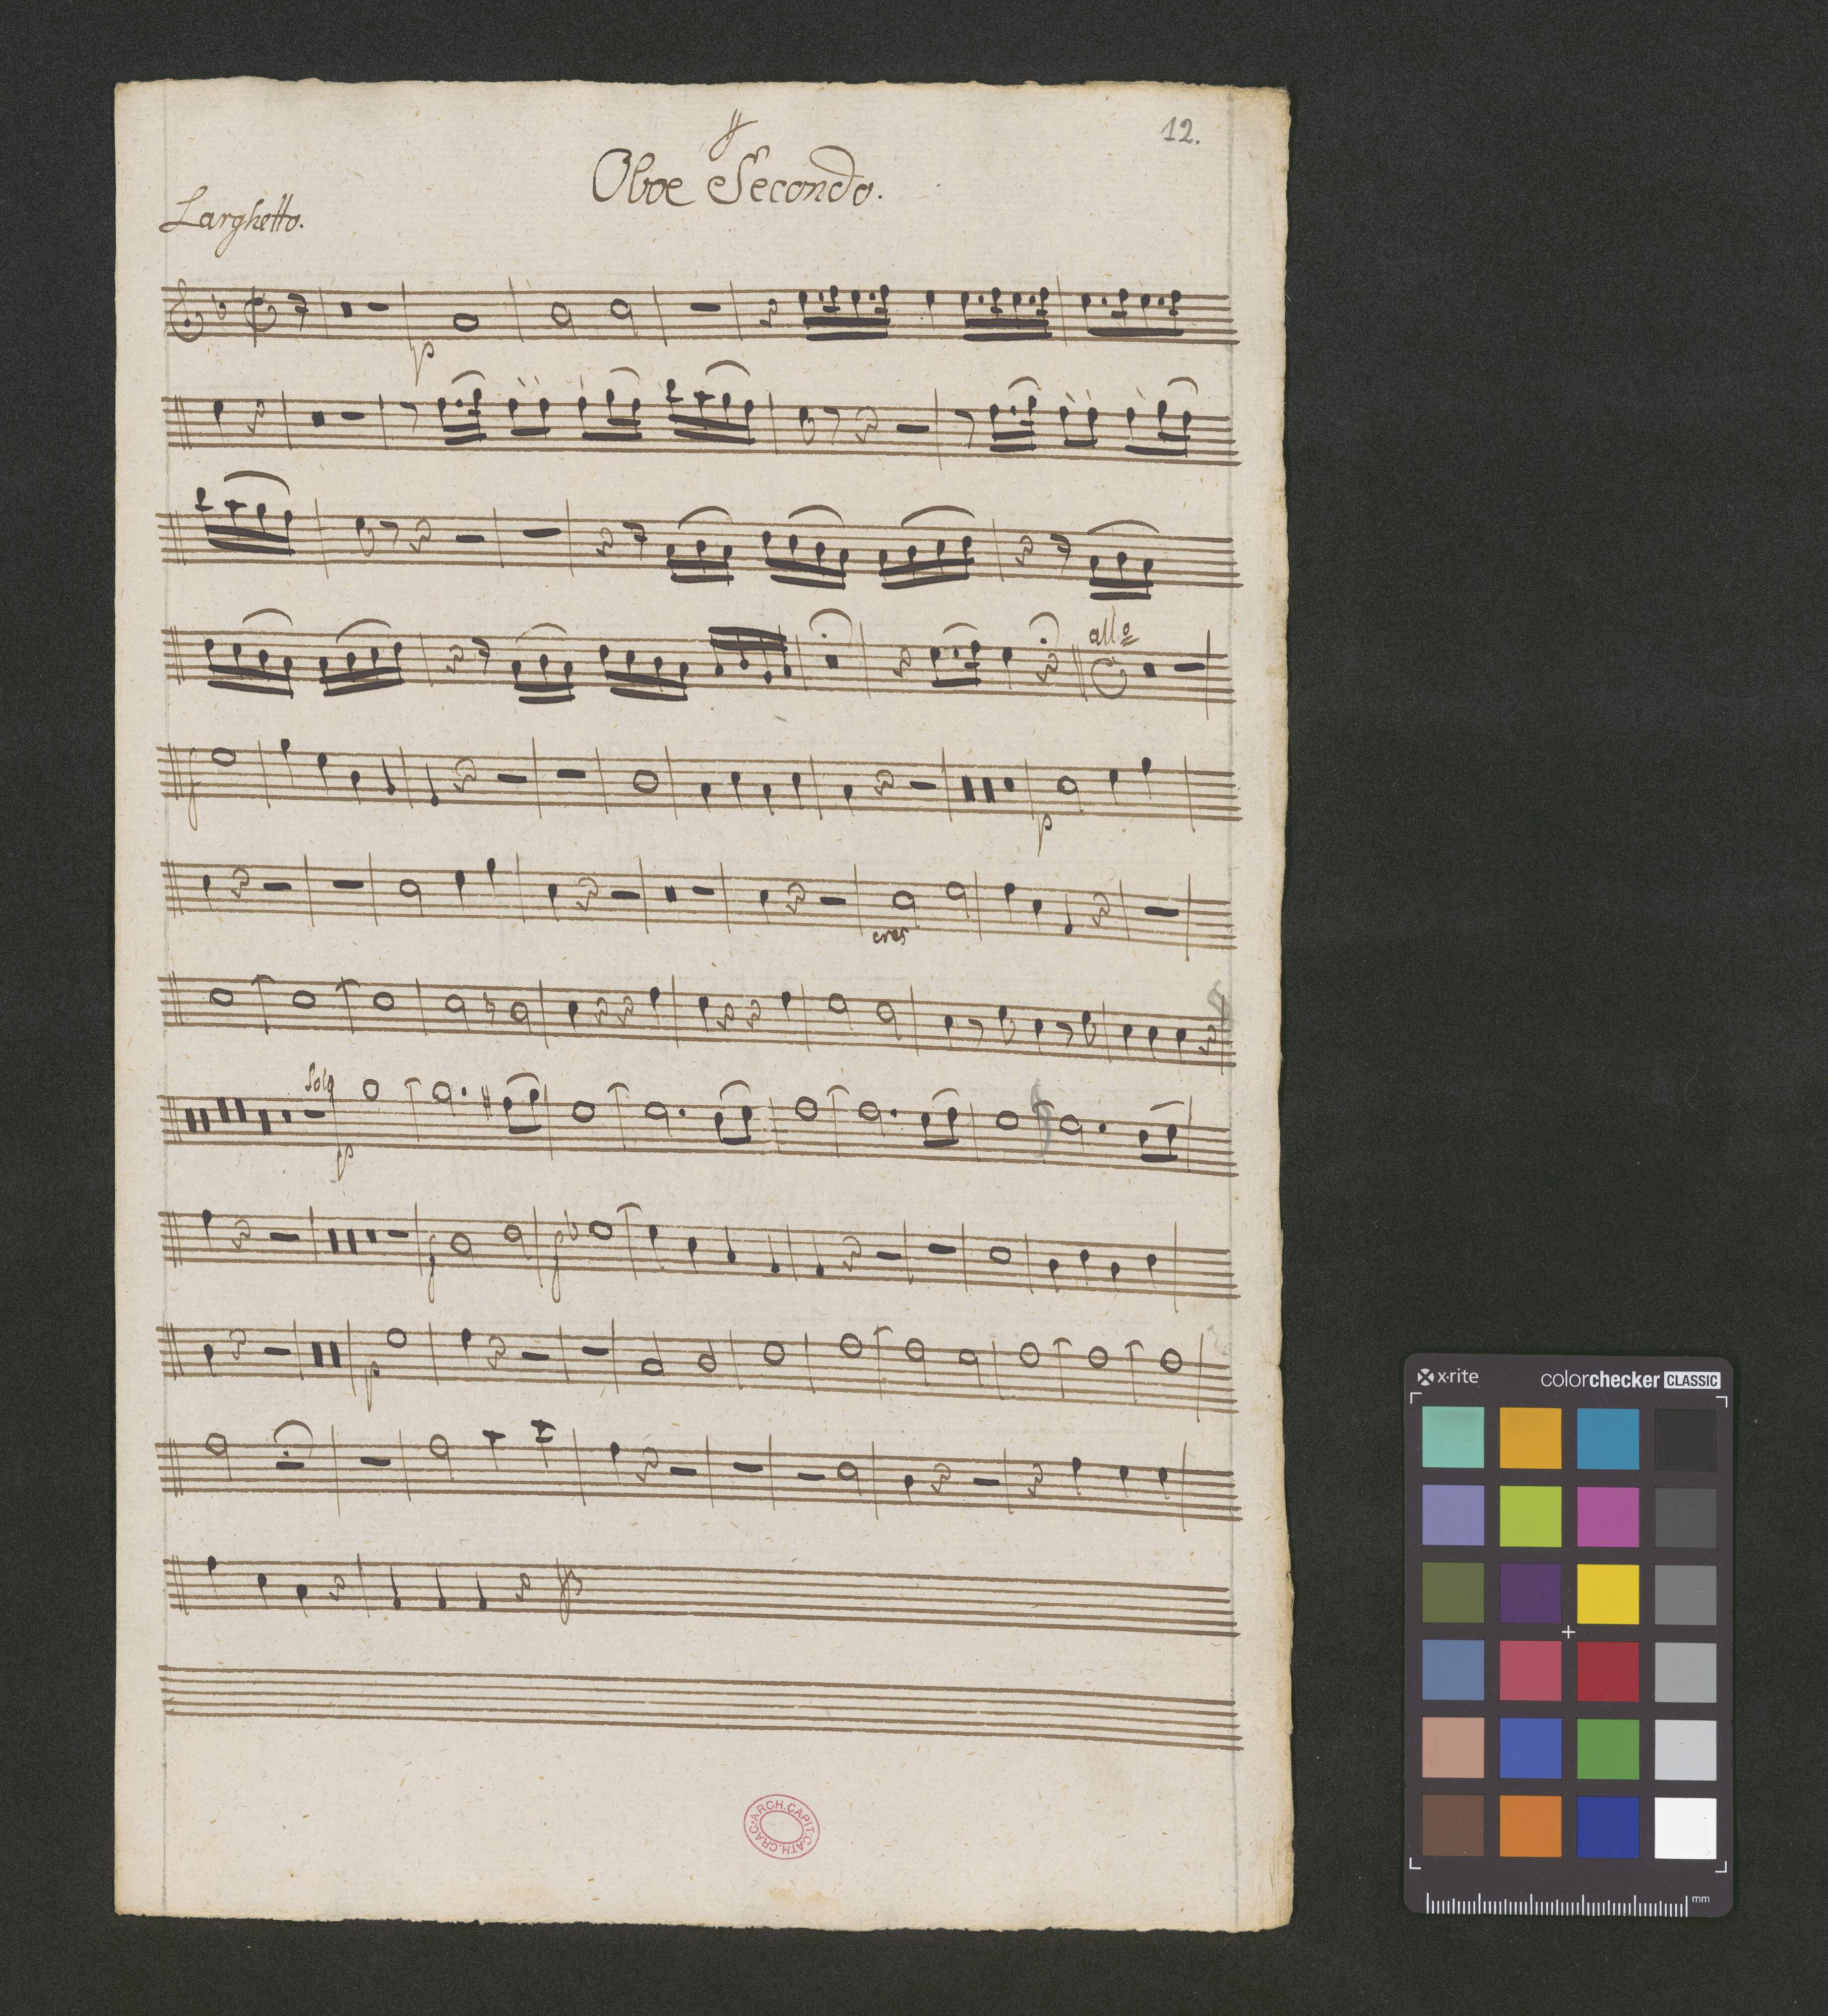 12.
Oboe Secondo.
Larghetto.
p
all°
f
p
cres
Solo
p
f
f
p
ARCH.CAPIT.CATH.CRAC.
x-rite
colorchecker CLASSIC
mm